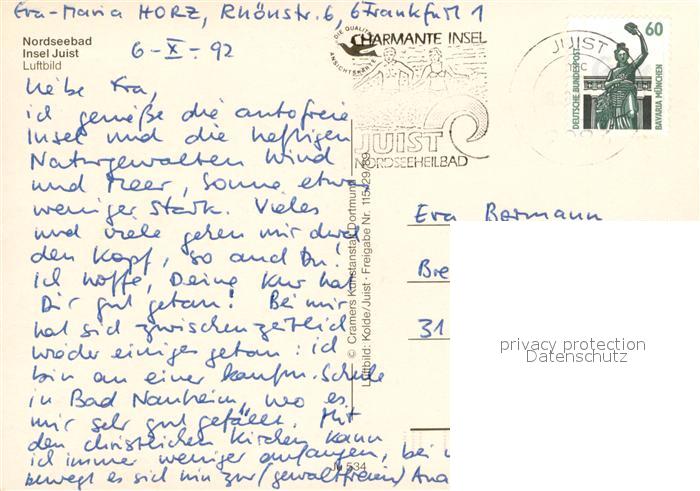 Eva-Maria HORZ, Rhönstr. 6, 6 Frankfurt 1
Nordseebad
Insel Juist
Luftbild
6-X-92
Liebe Eva,
ich genieße die autofreie
Insel und die heftigen
Naturgewalten Wind
und Meer, Sonne etwas
weniger stark. Vieles
und viele gehen mir durch
den Kopf, so auch Du!
Ich hoffe, Deine Kur hat
Dir gut getan! Bei mir
hat sich zwischenzeitlich
wieder einiges getan: ich
bin an einer kaufm. Schule
in Bad Nauheim, wo es
mir sehr gut gefällt. Mit
den christlichen Kirchen kann
ich immer weniger anfangen, bei
bewegt es sich hin zur (gewaltfreien) Ana
© Cramers Kunstanstalt Dortmund
Luftbild: Kolde/Juist · Freigabe Nr. 115/29/89
Ju 534
DIE QUALITÄTS
ANSICHTSKARTE
CHARMANTE INSEL
JUIST
NORDSEEHEILBAD
JUIST
60
DEUTSCHE BUNDESPOST
BAVARIA MÜNCHEN
Eva Bormann
Bre
31
privacy protection
Datenschutz